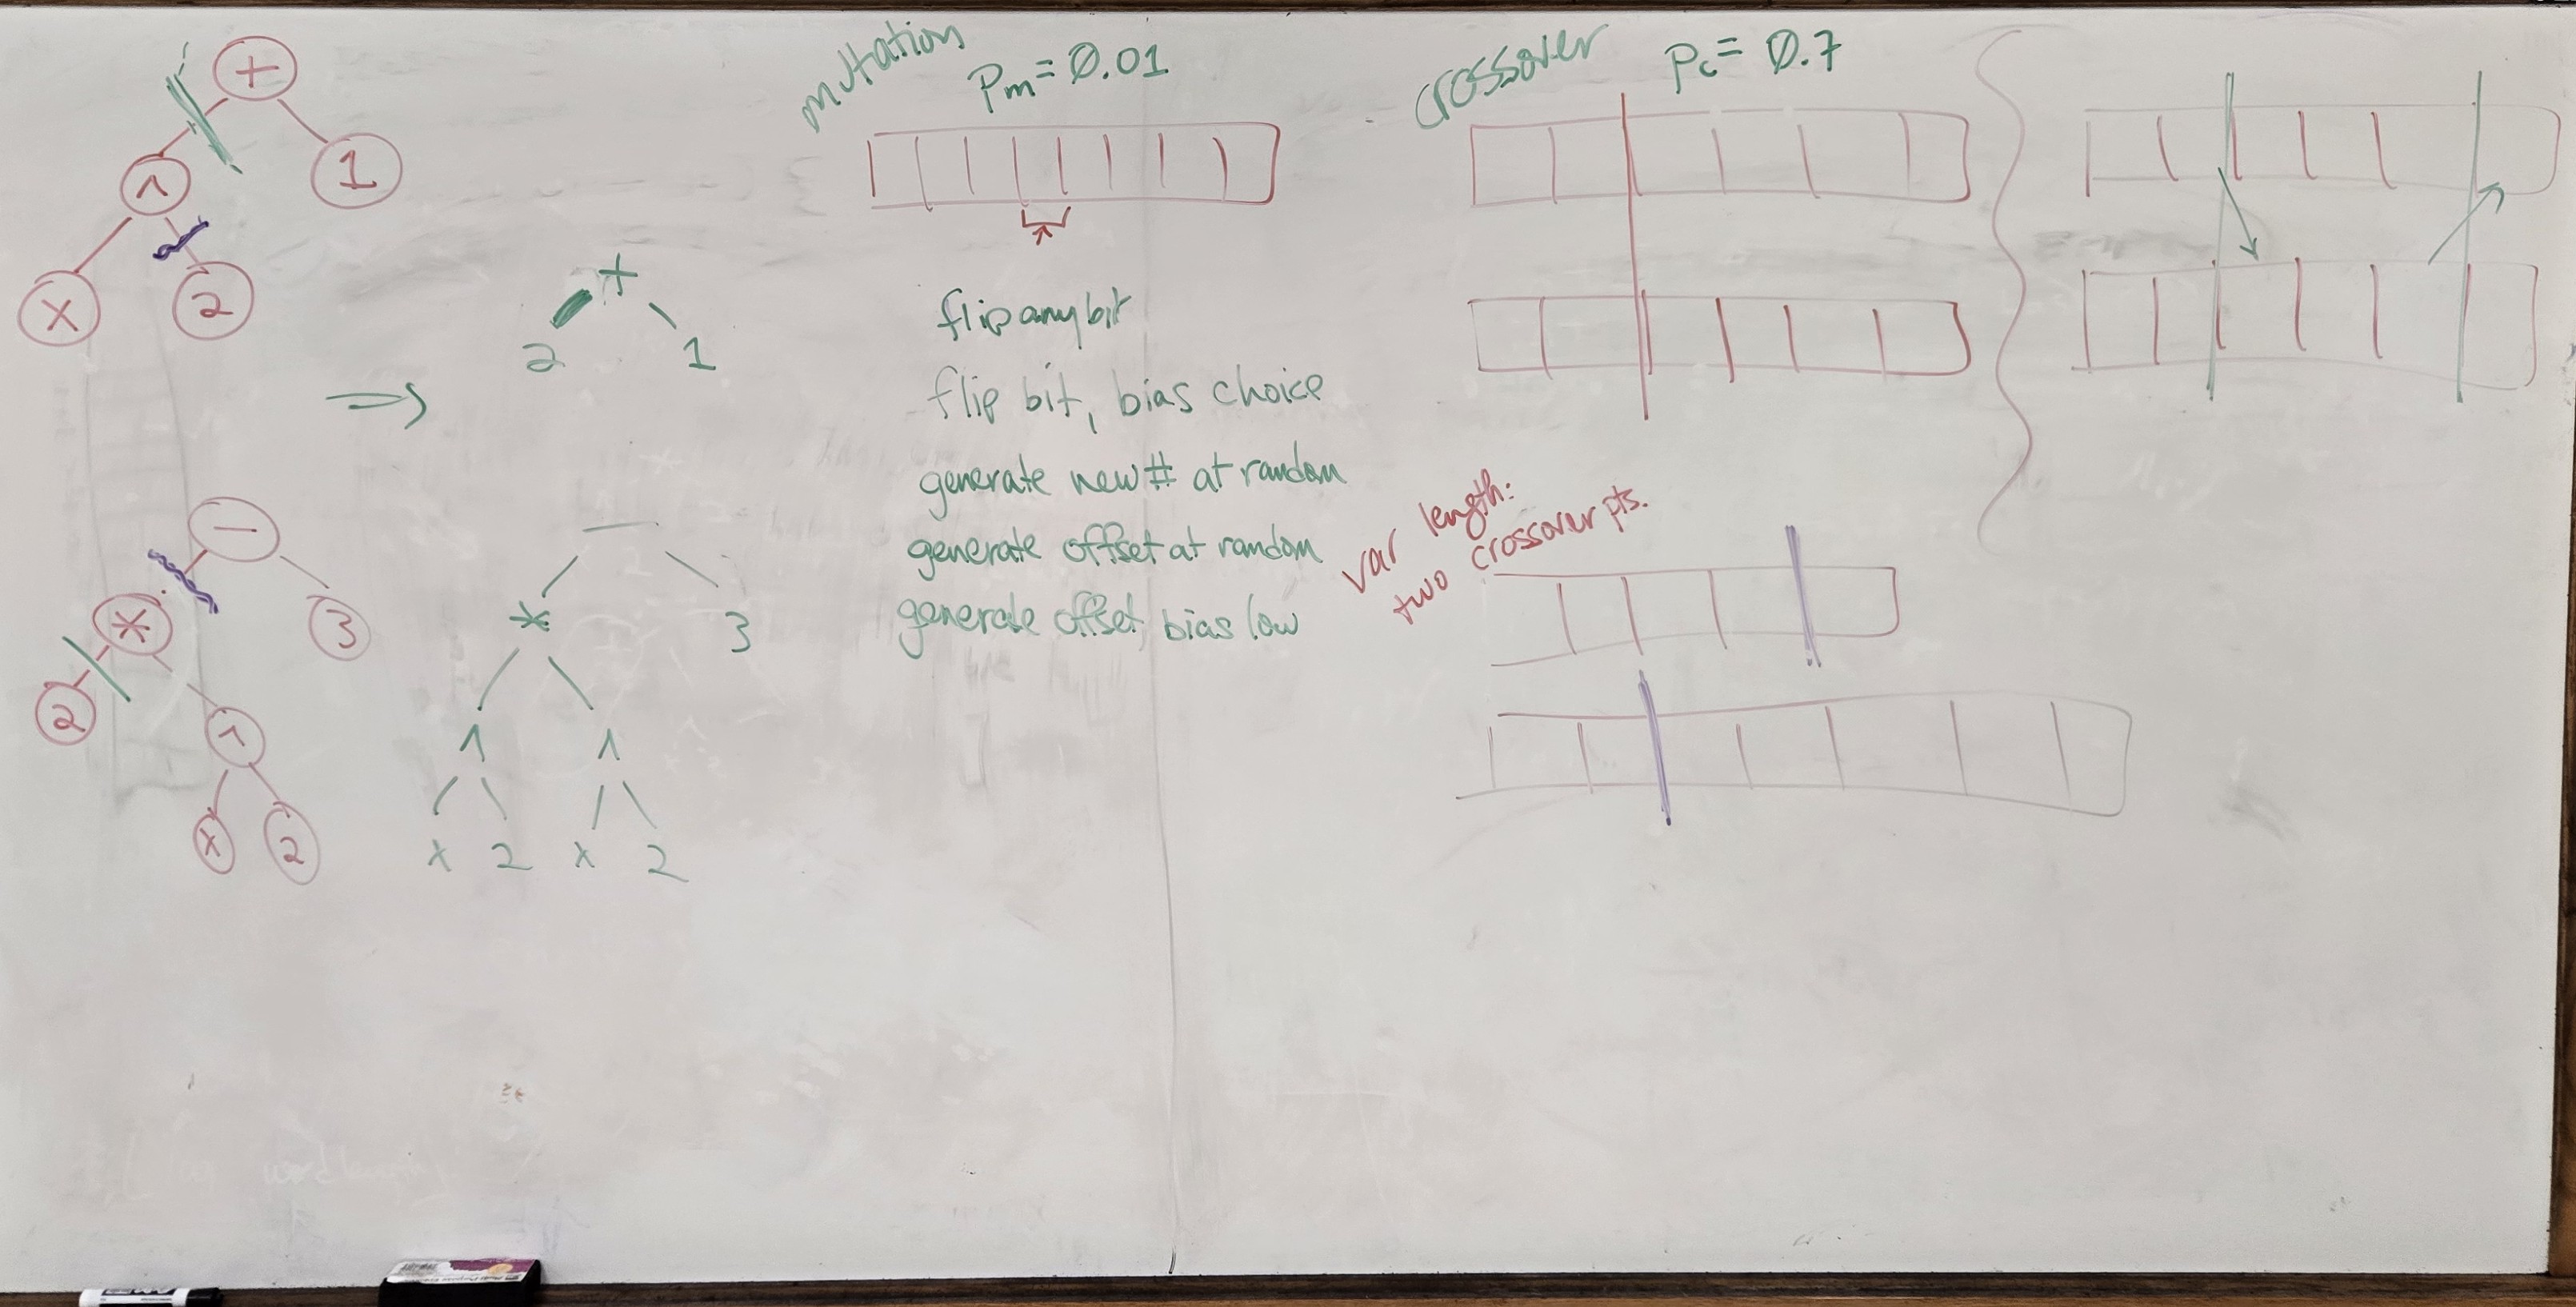 +
^ 1
x 2
⇒
+
2 1
−
* 3
2 ^
x 2
−
* 3
^ ^
x 2 x 2
mutation
Pm = 0.01
flip any bit
flip bit, bias choice
generate new # at random
generate offset at random
generate offset, bias low
crossover
Pc = 0.7
var length:
two crossover pts.
word length